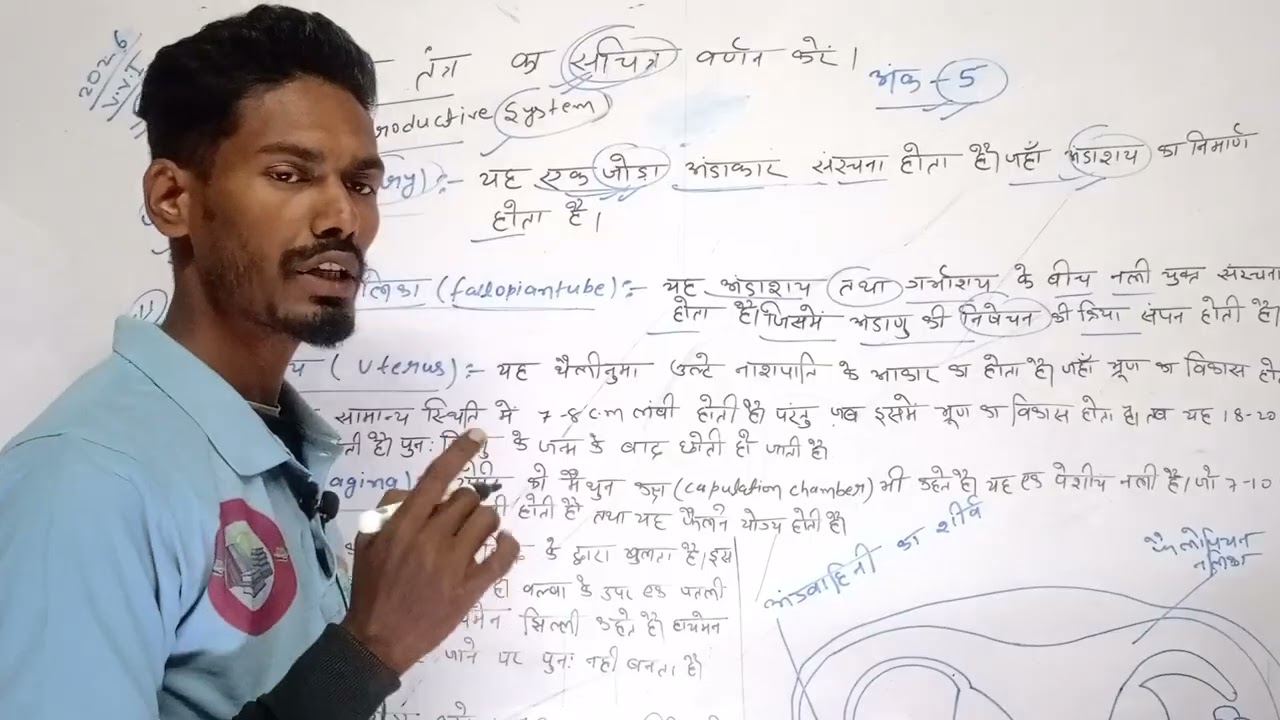 2026
V.V.I
तंत्र का सचित्र वर्णन करें।
अंक - 5
roductive System
ry) :- यह एक जोडा अंडाकार संरचना होता है। जहाँ अंडाशय का निर्माण
होता है।
लिका (fallopiantube) :- यह अंडाशय तथा गर्भाशय के बीच नली युक्त संरचना
होता है। जिसमें अंडाणु की निषेचन की क्रिया संपन होती है।
य (Uterus) :- यह थैलीनुमा उल्टे नाशपाति के आकार का होता है। जहाँ भ्रूण का विकास हो
सामान्य स्थिति में 7-8 cm लंबी होती है। परंतु जब इसमें भ्रूण का विकास होता है। तब यह 18-20
ती है। पुनः के जन्म के बाद छोटी हो जाती है।
agina) को मैथुन कक्ष (capulation chamber) भी कहते है। यह एक पेशीय नली है। जो 7-10
होती है। तथा यह फैलने योग्य होती है।
के द्वारा खुलता है। इस
वल्वा के उपर एक पतली
मेन झिल्ली कहते है। हायमेन
जाने पर पुनः नही बनता है।
अंडवाहिनी का शीर्ष
फैलोपियन
नलिका